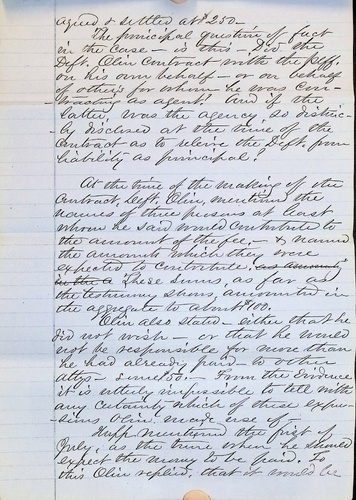 agreed & settled at $250.-
The principal question of fact
in the case - is this - Did the
Deft. Olin contract with the Plff.
on his own behalf - or on behalf
of others for whom he was con-
tracting as agent? And if the
latter, was the agency so distinct-
ly disclosed at the time of the
contract as to relieve the Deft. from
liability as principal?
At the time of the making of the
contract, Deft. Olin, mentioned the
names of three persons at least
whom he said would contribute to
the amount of the fee, - & named
the amounts which they were
expected to contribute,
These sums, as far as
the testimony shows, amounted in
the aggregate to about $100.
Olin also stated - either that he
did not wish - or that he would
not be responsible for more than
he had already paid - to other
attys - some $50. - From the evidence
it is utterly impossible to tell with
any certainty which of these expres-
sions Olin made use of.
Hupp mentioned the first of
July, as the time when he should
expect the money to be paid. To
this Olin replied, that it would be